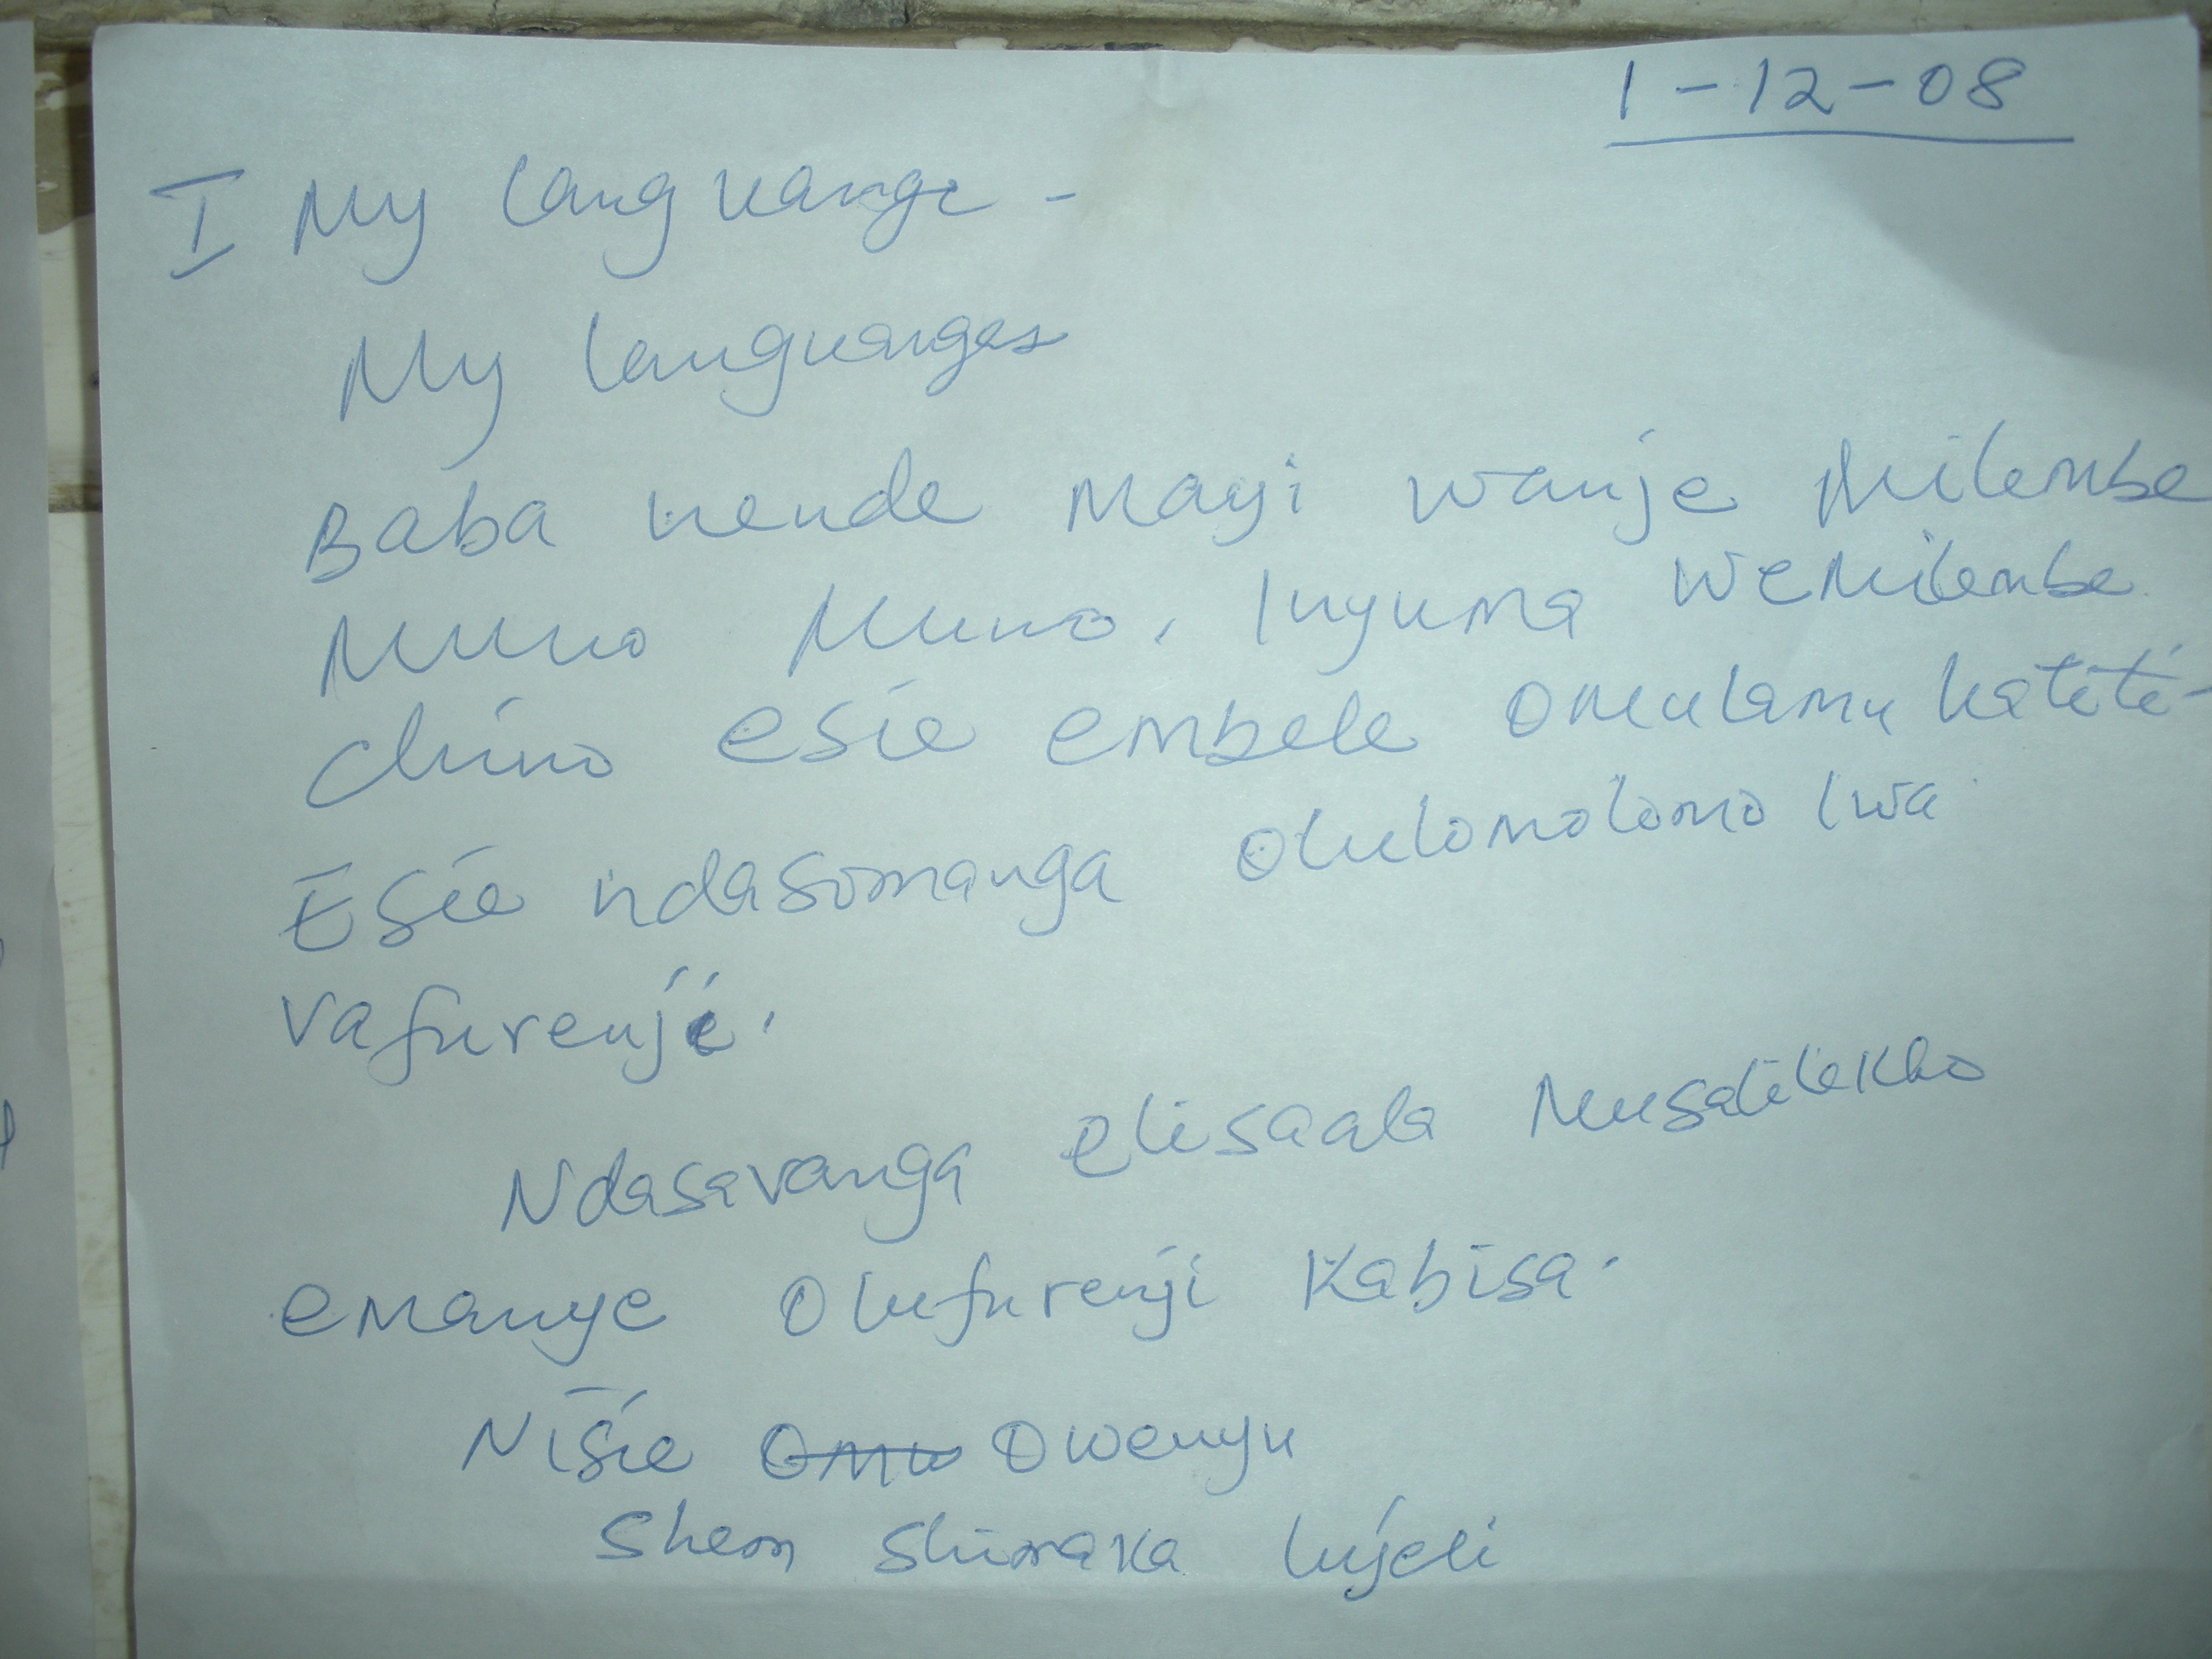 1-12-08
I My languange -
My languanges
Baba nende Mayi wanje Milembe
Muno Muno, luyuma weMilembe
chino esie embele omulamu
Esie ndasomanga olulomolomo lwa
vafurenji.
Ndasavanga elisaala Musalilekho
emanye Olufurenji Kabisa.
Nisie Omu Owenyu
Shem Shimaka lujeli